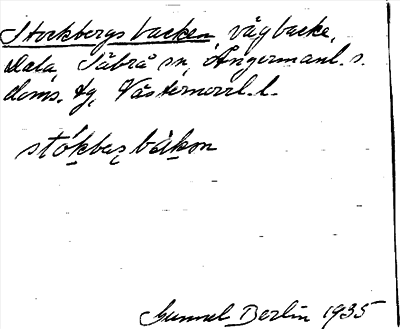 Stockbergsbacken, vägbacke,
Dala, Säbrå sn, Ångermanl. s.
doms. tg, Västernorrl. l.
stókbasbàkən
Gunnel Berlin 1935